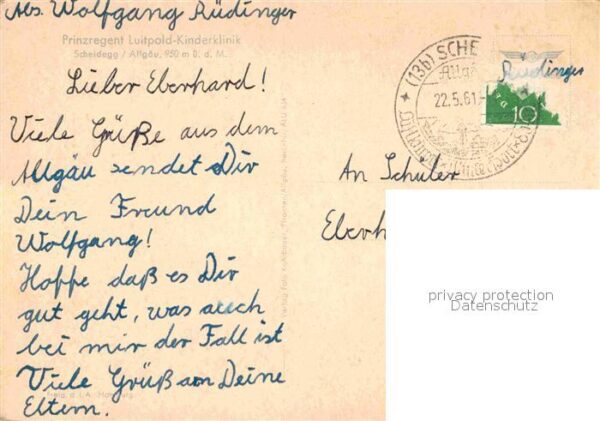 Abs. Wolfgang Rüdinger
Prinzregent Luitpold-Kinderklinik
Scheidegg / Allgäu, 950 m ü. d. M.
Lieber Eberhard!
Viele Grüße aus dem
Allgäu sendet Dir
Dein Freund
Wolfgang!
Hoffe daß es Dir
gut geht, was auch
bei mir der Fall ist
Viele Grüß an Deine
Eltern.
(13b) SCHE
Allgä
22.5.61
Rüdinger
10
An Schüler
Eberh
privacy protection
Datenschutz